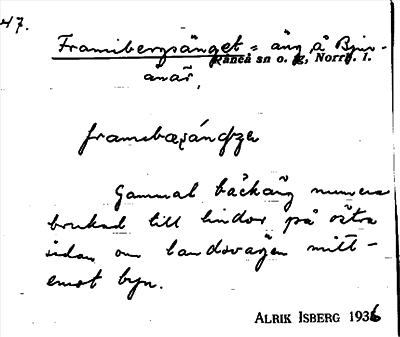 47.
Framibergsänget = äng å Bjur-
Råneå sn o. tg, Norrb. l.
ånär,
Gammal backäng numera
brukad till lindor på östra
sidan om landsvägen mitt-
emot byn.
ALRIK ISBERG 1936